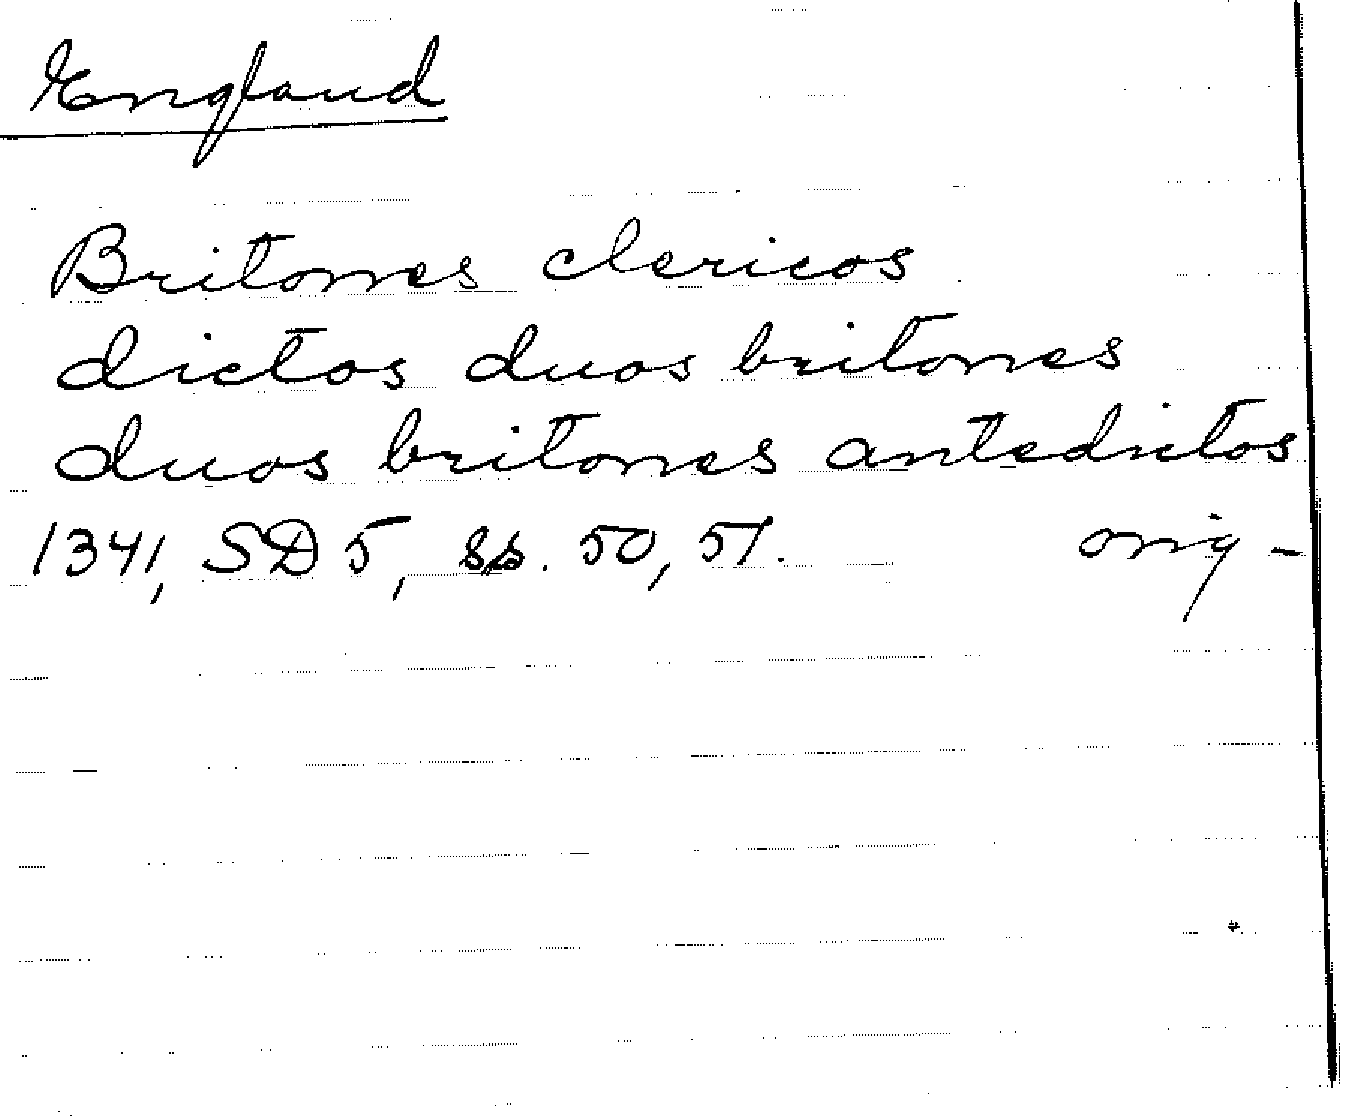 England
Britones clericos
dictos duos britones
duos britones antedictos
1341, SD 5, ss. 50, 51. orig -